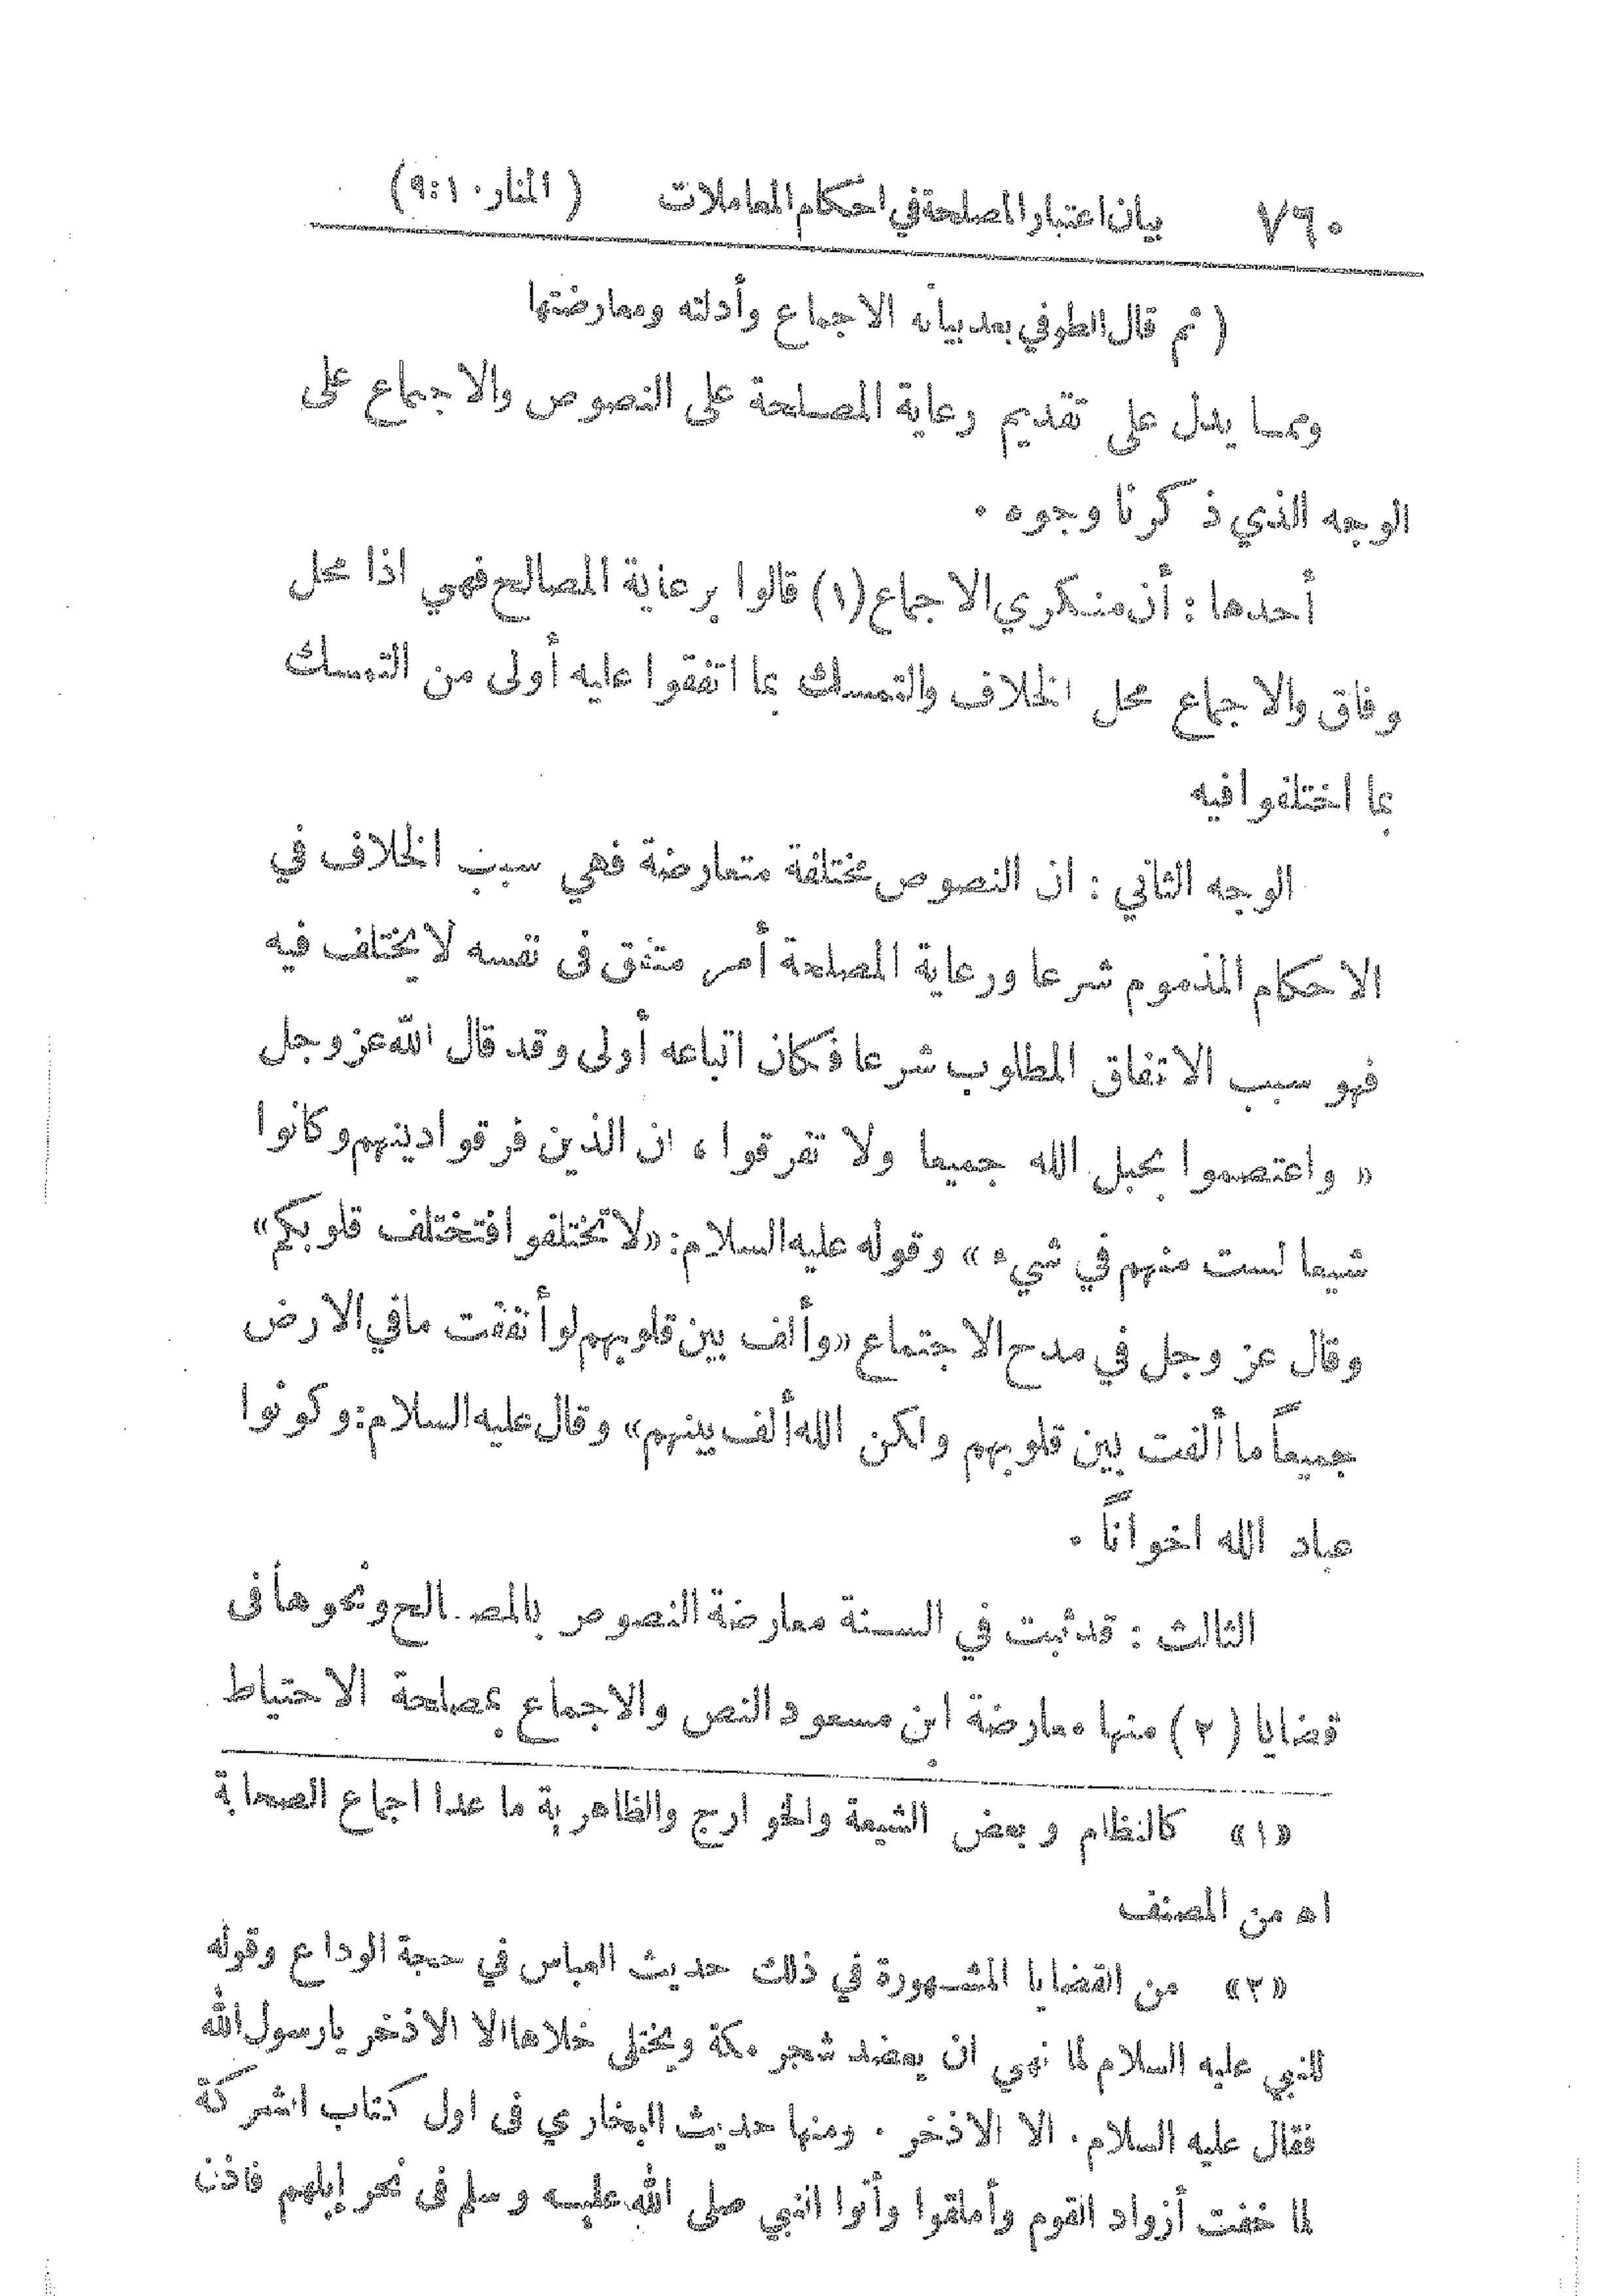 ٧٦٠ بيان اعتبار المصلحة في احكام المعاملات (المنار ١٠:٩)
(ثم قال الطوفي بعد بيانه الاجماع وأدلته ومعارضتها
ومما يدل على تقديم رعاية المصلحة على النصوص والاجماع على
الوجه الذي ذكرنا وجوه .
أحدها : أن منكري الاجماع (١) قالوا برعاية المصالح فهي اذا محل
وفاق والاجماع محل الخلاف والتمسك بما اتفقوا عليه أولى من التمسك
بما اختلفوا فيه
الوجه الثاني : ان النصوص مختلفة متعارضة فهي سبب الخلاف في
الاحكام المذموم شرعا ورعاية المصلحة أمر متفق في نفسه لا يختلف فيه
فهو سبب الاتفاق المطلوب شرعا فكان اتباعه أولى وقد قال الله عز وجل
« واعتصموا بحبل الله جميعا ولا تفرقوا ، ان الذين فرقوا دينهم وكانوا
شيعا لست منهم في شيء » وقوله عليه السلام : «لا تختلفوا فتختلف قلوبكم»
وقال عز وجل في مدح الاجتماع «وألف بين قلوبهم لو أنفقت ما في الارض
جميعاً ما ألفت بين قلوبهم ولكن الله ألف بينهم» وقال عليه السلام : وكونوا
عباد الله اخواناً .
الثالث : قد ثبت في السنة معارضة النصوص بالمصالح ونحوها في
قضايا (٢) منها معارضة ابن مسعود النص والاجماع بمصلحة الاحتياط
«١» كالنظام وبعض الشيعة والخوارج والظاهرية ما عدا اجماع الصحابة
اه من المصنف
«٢» من القضايا المشهورة في ذلك حديث العباس في حجة الوداع وقوله
للنبي عليه السلام لما نهي ان يعضد شجر مكة ويختلى خلاها الا الاذخر يارسول الله
فقال عليه السلام . الا الاذخر . ومنها حديث البخاري في اول كتاب الشركة
لما خفت أزواد القوم وأملقوا وأتوا النبي صلى الله عليه وسلم في نحر إبلهم فاذن